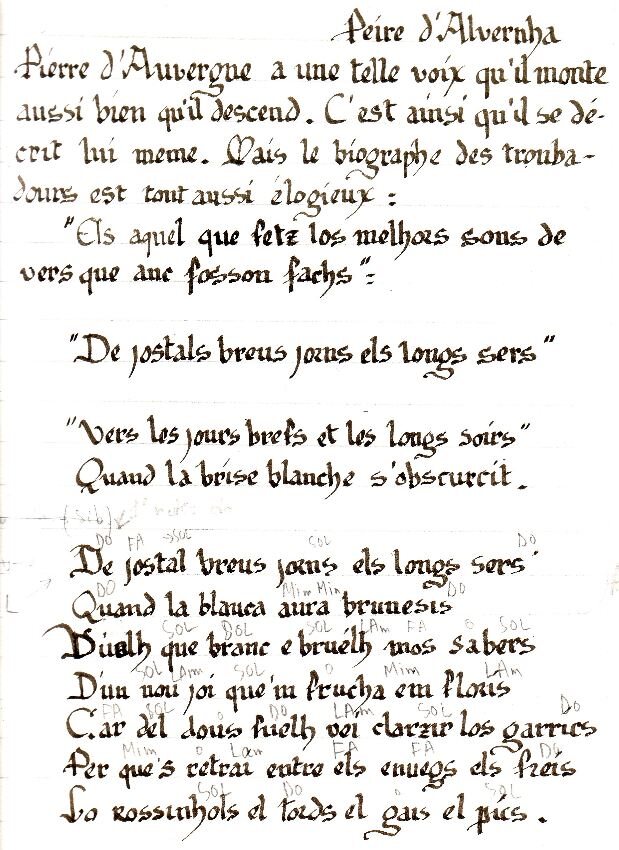 Peire d'Alvernha
Pierre d'Auvergne a une telle voix qu'il monte
aussi bien qu'il descend. C'est ainsi qu'il se dé-
crit lui meme. Mais le biographe des trouba-
dours est tout aussi élogieux :
"Els aquel que fetz los melhors sons de
vers que anc fosson fachs":
"De jostals breus jorns els longs sers"
"Vers les jours brefs et les longs soirs"
Quand la brise blanche s'obscurcit.
(sib)
DO FA →SOL SOL DO
De jostal breus jorns els longs sers
DO Mim Mim DO
Quand la blauca aura brunesis
SOL SOL SOL LAm FA o SOL
Vuelh que branc e bruelh mos sabers
SOL LAm SOL o Mim LAm
D'un nou joi que'm frucha em floris
FA SOL o DO LAm SOL DO
Car del dous fuelh vei clarzir los garrics
Mim o Lam FA FA DO
Per que's retrai entre els enuegs els freis
SOL DO o SOL
Lo rossinhols el tords el gais el pics.